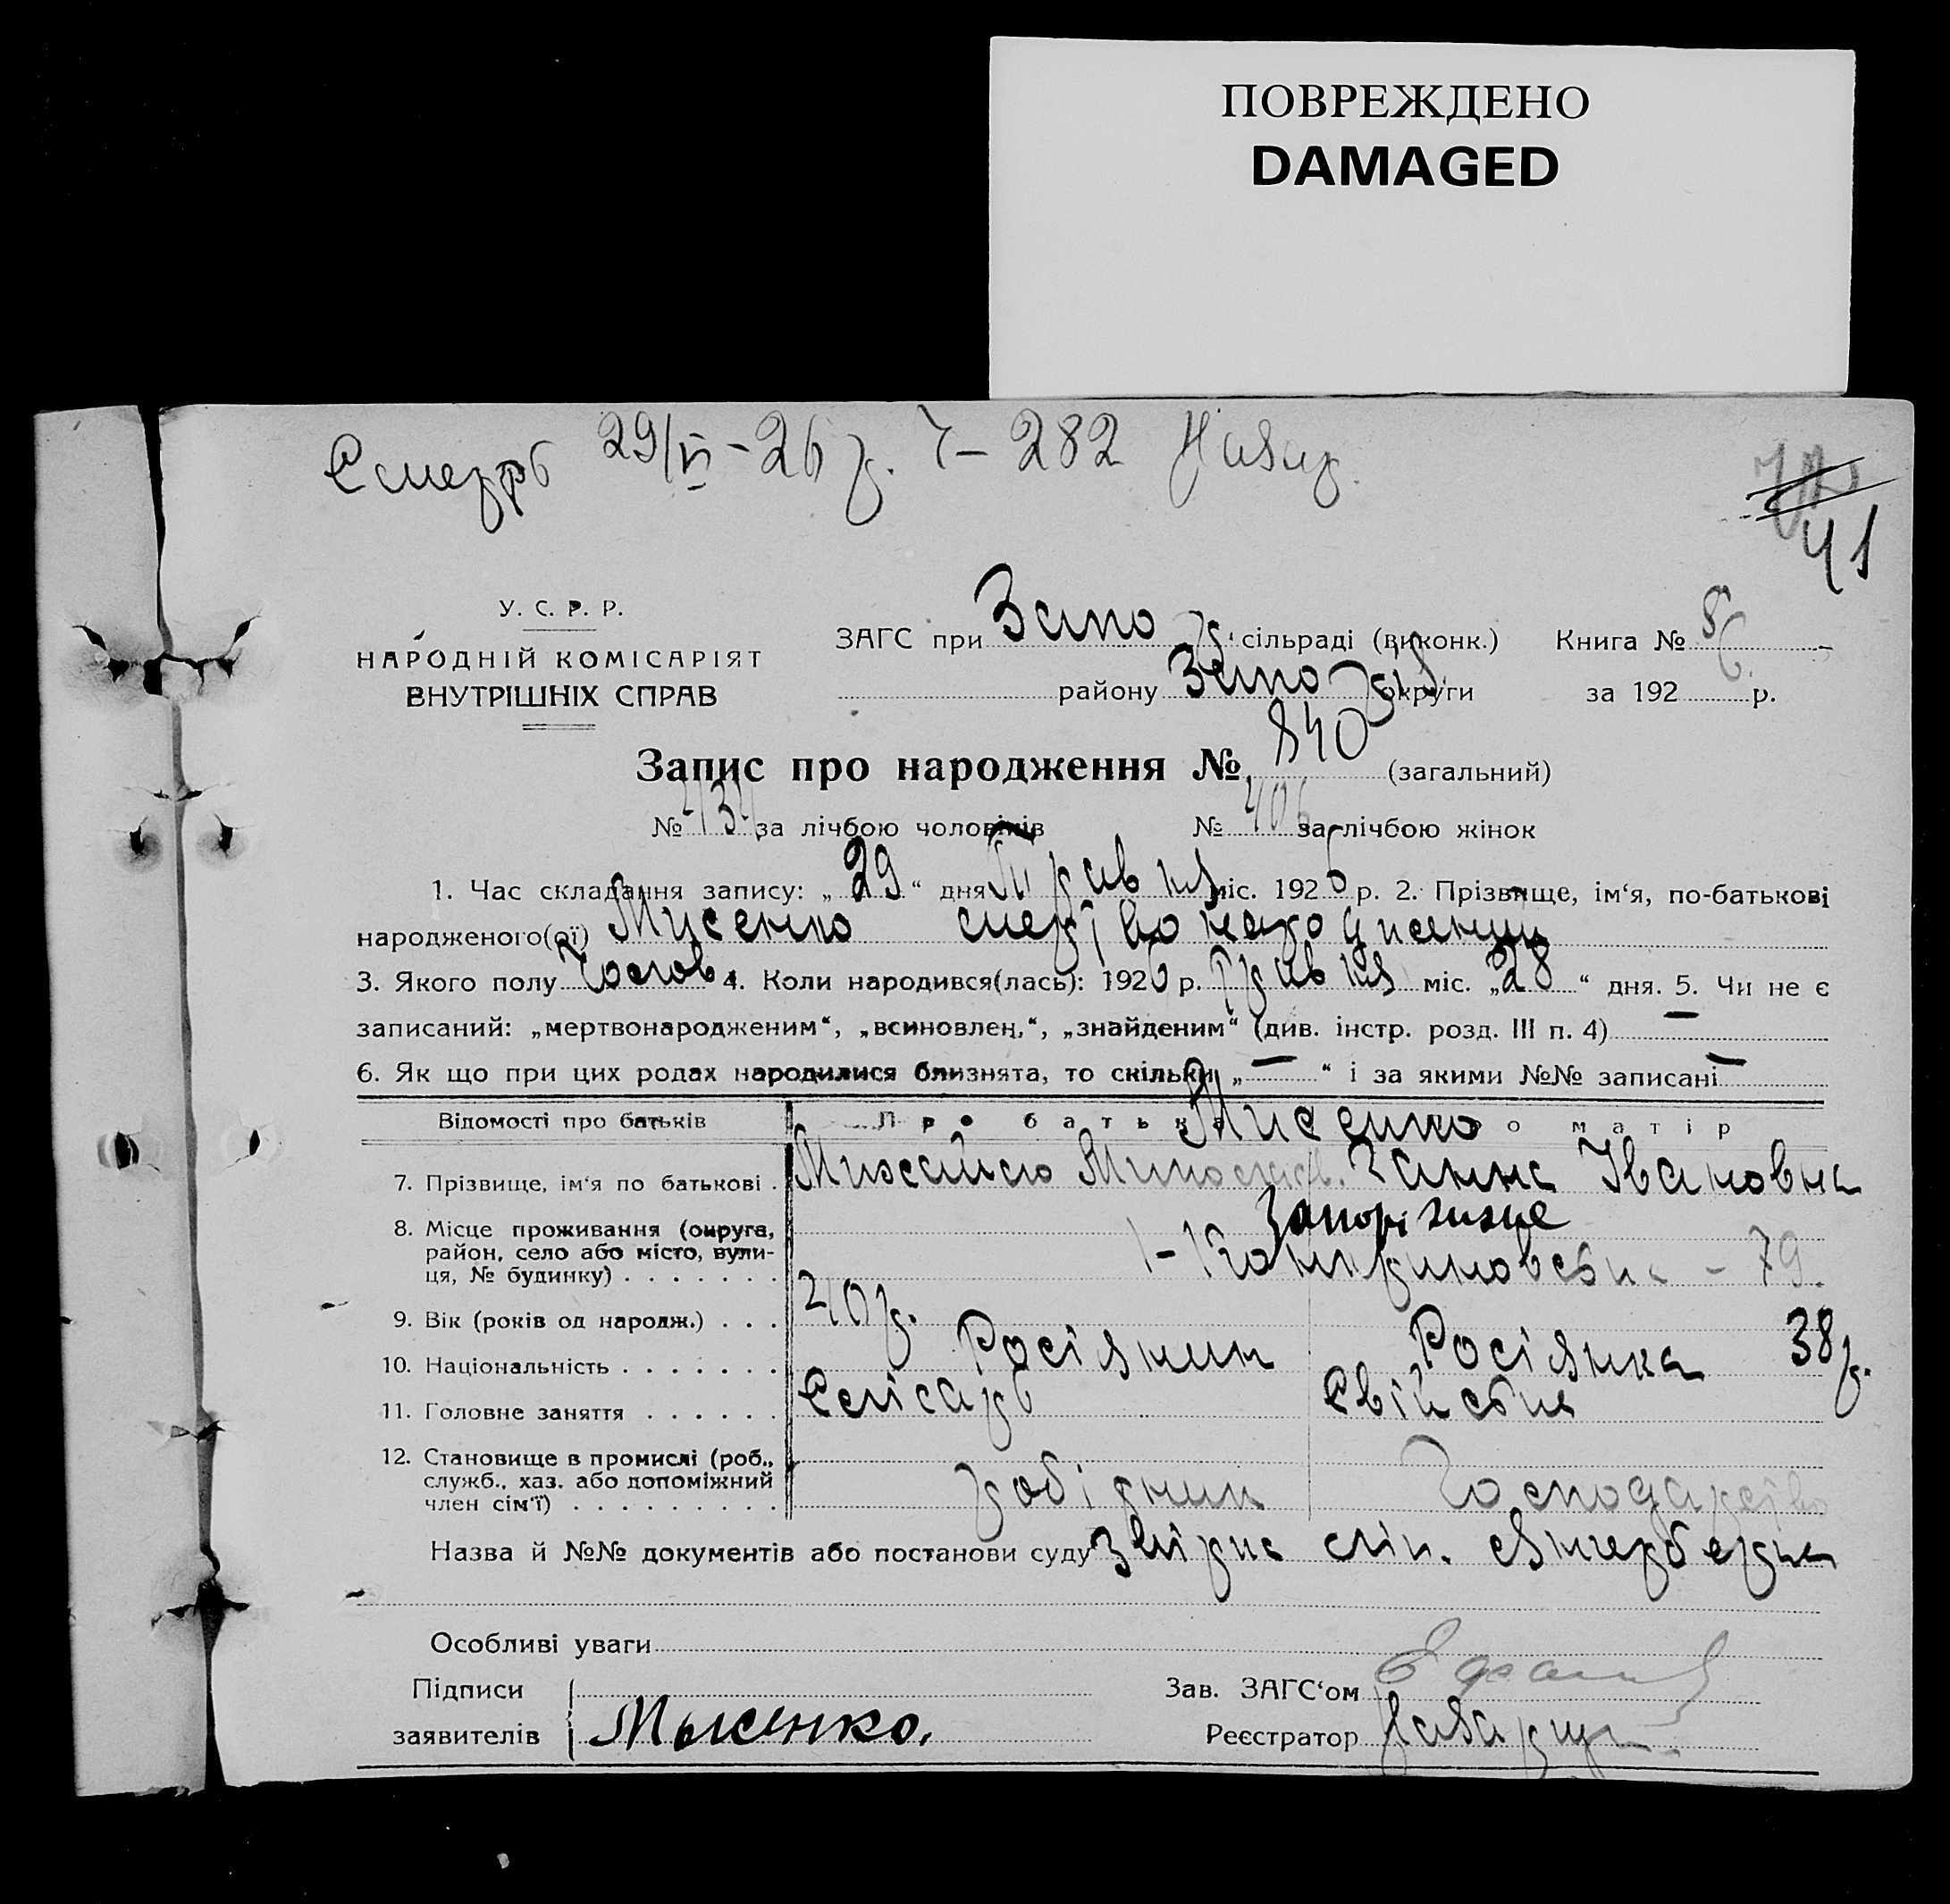 ПОВРЕЖДЕНО
DAMAGED
Смерть 29/VI-26 р. Ч-282
41
У. С. Р. Р.
НАРОДНІЙ КОМІСАРІЯТ
ВНУТРІШНІХ СПРАВ
ЗАГС при Запо сільраді (виконк.) Книга № 8
району Запо округи за 192 6 р.
Запис про народження № 840 (загальний)
№ 434 за лічбою чоловіків № 406 за лічбою жінок
1. Час складання запису: „ 29 “ дня Травня міс. 192 6 р. 2. Прізвище, ім‘я, по-батькові
народженого(ої) Мисенко мертвонароджений
3. Якого полу Чолов. 4. Коли народився(лась): 192 6 р. Травня міс. „ 28 “ дня. 5. Чи не є
записаний: „мертвонародженим“, „всиновлен.“, „знайденим“ (див. інстр. розд. III п. 4) —
6. Як що при цих родах народилися близнята, то скільки „ — “ і за якими №№ записані —
Відомості про батьків Про батька Про матір
Мисенко
7. Прізвище, ім‘я по батькові . Михайло Ганна Івановна
8. Місце проживання (округа,
район, село або місто, вули-
ця, № будинку) . . . . . . . Запоріжжє
79.
9. Вік (років од народж.) . . . 40 р. 38 р.
10. Національність . . . . . . . Росіянин Росіянка
11. Головне заняття . . . . . . Слюсарь Свійське
12. Становище в промислі (роб.,
служб., хаз. або допоміжний
член сім‘ї) . . . . . . . . . робідник Господарство
Назва й №№ документів або постанови суду
Особливі уваги
Підписи
заявителів Мысенко.
Зав. ЗАГС‘ом
Реєстратор